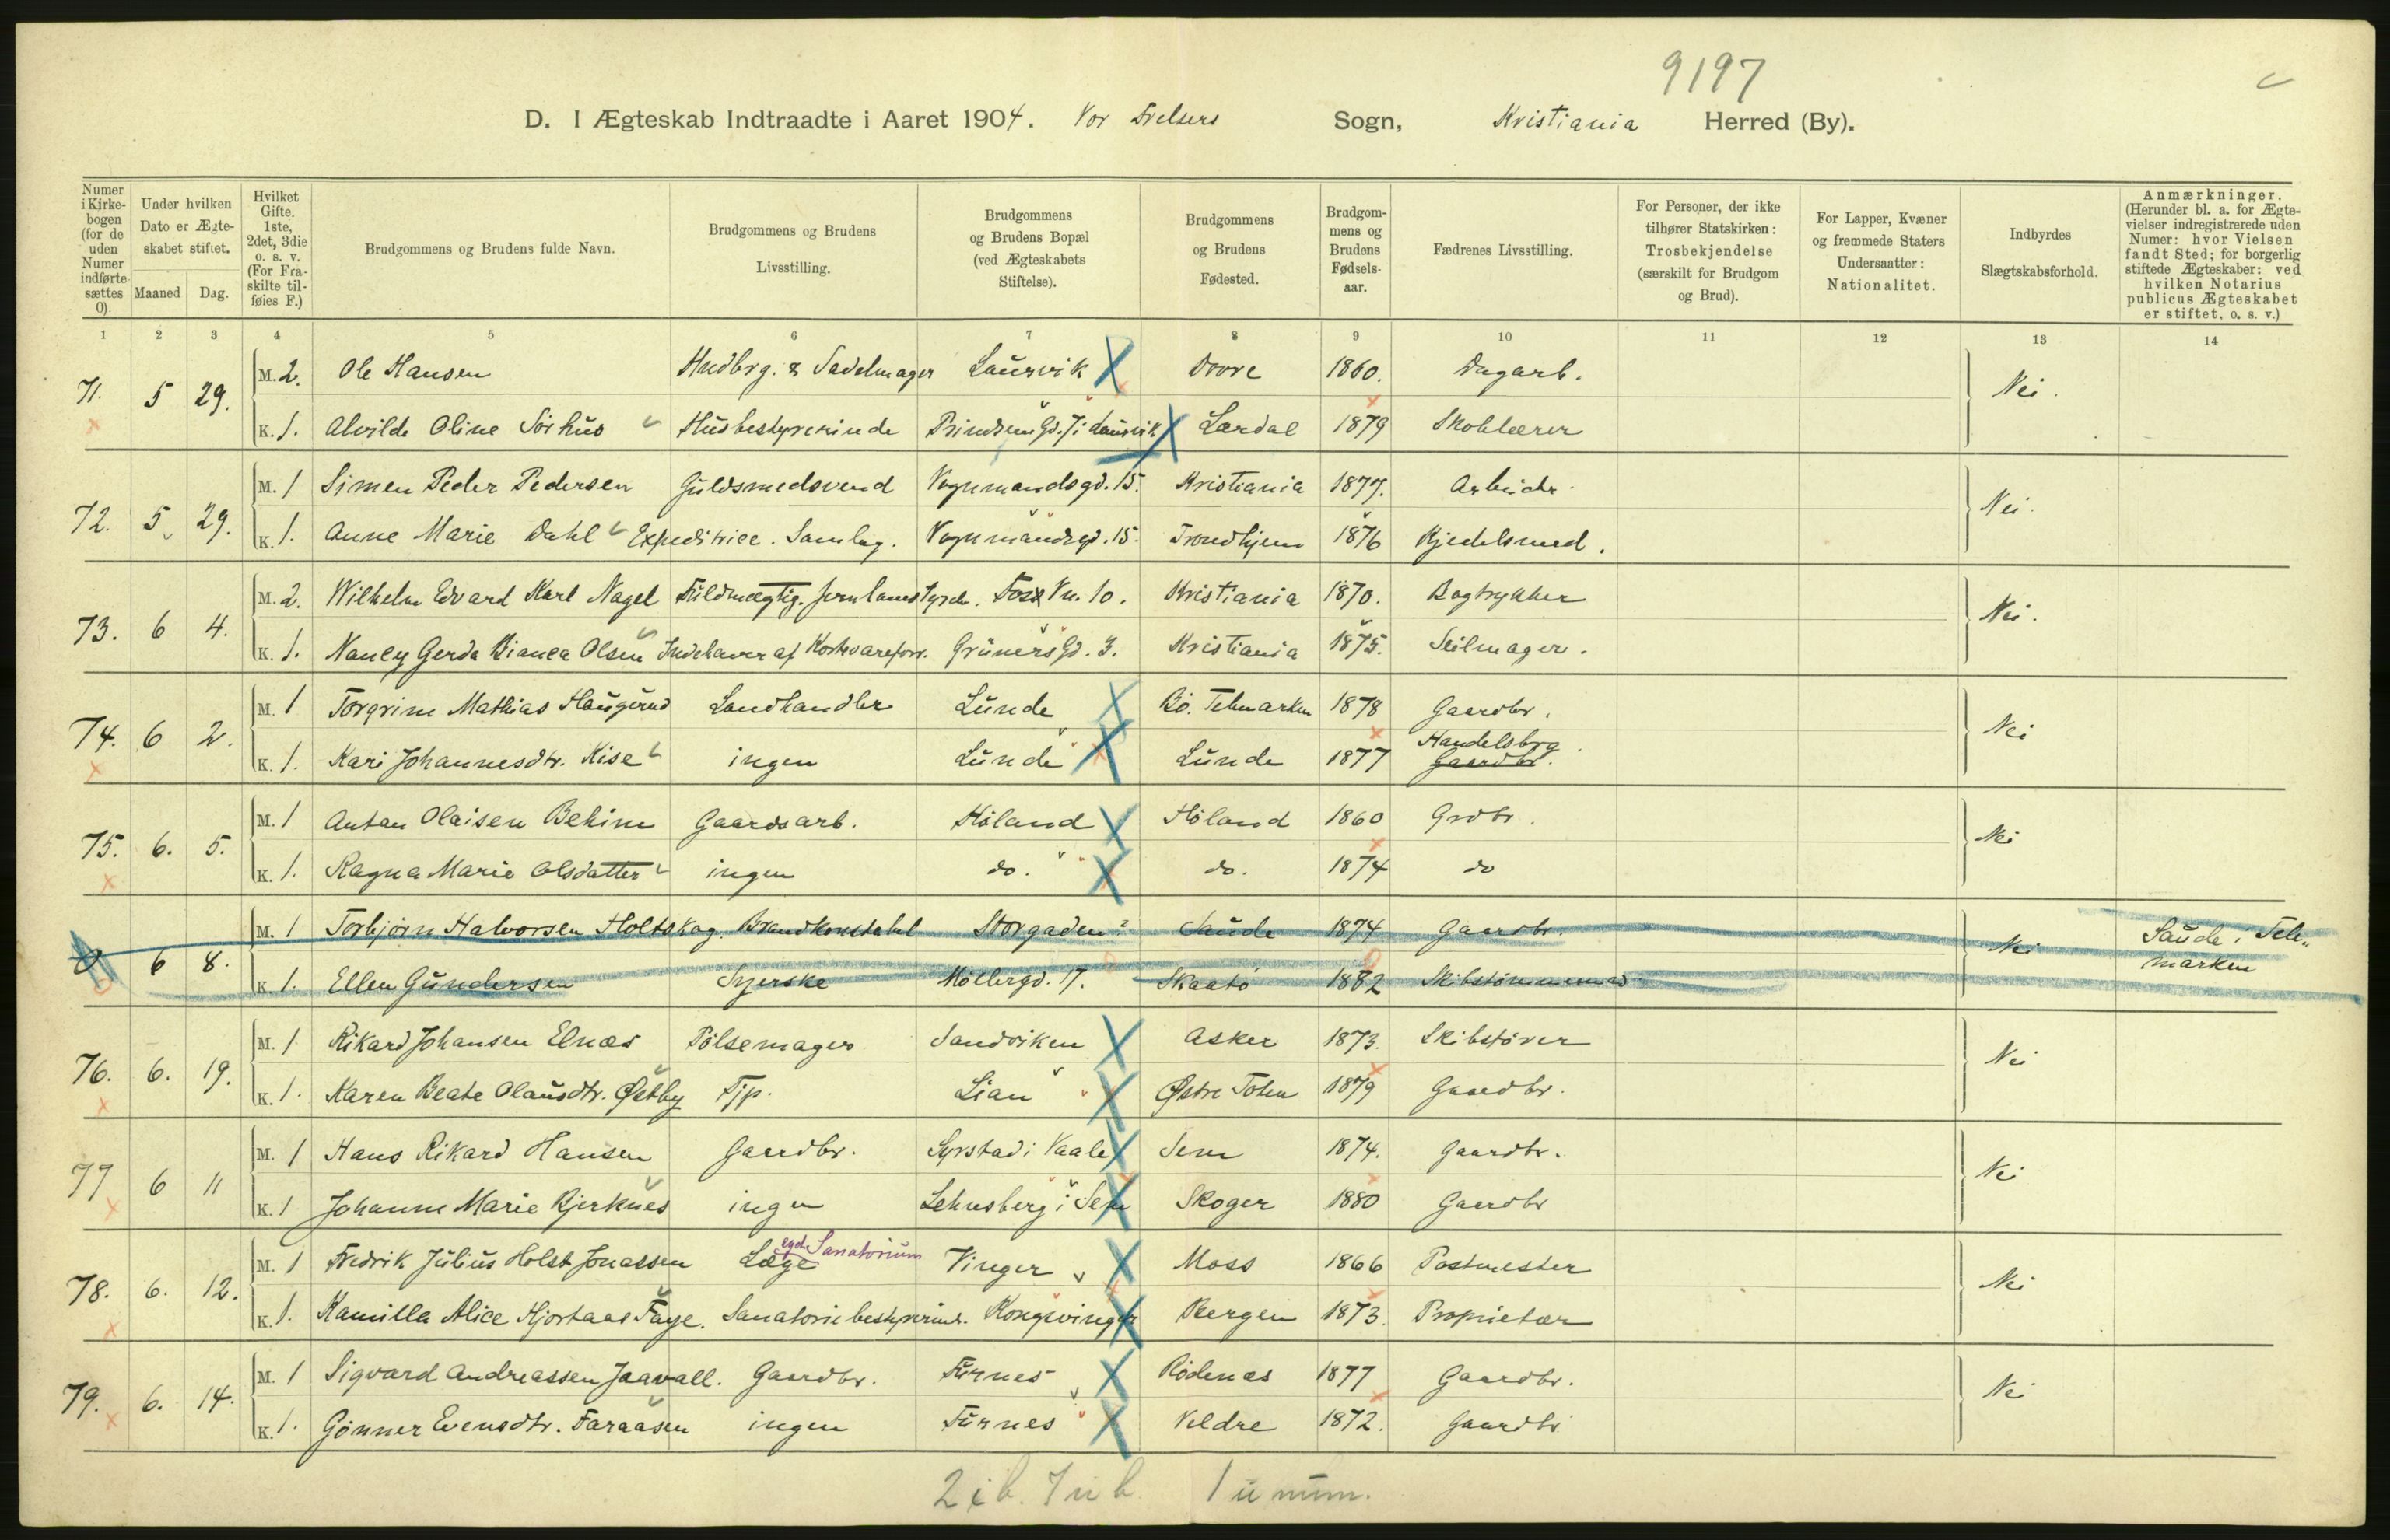 9197
D. I Ægteskab Indtraadte i Aaret 1904. Vor Frelsers Sogn, Kristiania Herred (By).
Numer i Kirkebogen (for de uden Numer indførte sættes 0).
Under hvilken Dato er Ægteskabet stiftet.
Maaned Dag.
Hvilket Gifte. 1ste, 2det, 3die o. s. v. (For Fraskilte tilføies F.)
Brudgommens og Brudens fulde Navn.
Brudgommens og Brudens Livsstilling.
Brudgommens og Brudens Bopæl (ved Ægteskabets Stiftelse).
Brudgommens og Brudens Fødested.
Brudgommens og Brudens Fødselsaar.
Fædrenes Livsstilling.
For Personer, der ikke tilhører Statskirken: Trosbekjendelse (særskilt for Brudgom og Brud).
For Lapper, Kvæner og fremmede Staters Undersaatter: Nationalitet.
Indbyrdes Slægtskabsforhold.
Anmærkninger. (Herunder bl. a. for Ægtevielser indregistrerede uden Numer: hvor Vielsen fandt Sted; for borgerlig stiftede Ægteskaber: ved hvilken Notarius publicus Ægteskabet er stiftet, o. s. v.)
1 2 3 4 5 6 7 8 9 10 11 12 13 14
71. 5 29. M. 2. Ole Hansen Hndbrg. & Sadelmager Laurvik Dovre 1860. Dagarb. Nei.
K. 1. Alvilde Oline Sørhus Husbestyrerinde Prindsens Gd. 7 i Laurvik Lardal 1879 Skolelærer
72. 5 29. M. 1 Simen Peder Pedersen Guldsmedsvend Vognmandsgd. 15. Kristiania 1877. Arbeider Nei.
K. 1. Anne Marie Dahl Expeditrice. Samlag. Vognmandsgd. 15. Trondhjem 1876 Kjedelsmed.
73. 6 4. M. 2. Wilhelm Edvard Karl Nagel Fuldmægtig. Foss Vn. 10. Kristiania 1870. Bogtrykker Nei.
K. 1. Nancy Gerda Bianca Olsen Indehaver af Kortevareforr. Grüners Gd. 3. Kristiania 1875. Seilmager.
74. 6 2. M. 1 Torgrim Mathias Haugerud Landhandler Lunde Bø. Telemarken 1878 Gaardbr. Nei
K. 1. Kari Johannesdtr. Kise ingen Lunde Lunde 1877 Handelsbrg. Gaardbr.
75. 6. 5. M. 1 Anton Olaisen Bekim Gaardsarb. Høland Høland 1860 Grdbr. Nei
K. 1. Ragna Marie Olsdatter ingen do. do. 1874 do
0 6 8. M. 1 Torbjørn Halvorsen Holtskog. Brandkonstabel Storgaden 2 Saude 1874 Gaardbr. Nei Saude i Telemarken
K. 1. Ellen Gundersen Syerske Møllergd. 17. Skaatø 1882 Skibstømmermand
76. 6. 19. M. 1 Rikard Johansen Elnæs Pølsemager Sandviken Asker 1873. Skibsfører Nei
K. 1. Karen Beate Olausdtr. Østby Tjp. Lian Østre Toten 1879 Gaardbr.
77 6 11 M. 1 Hans Rikard Hansen Gaardbr. Syrstad i Vaale Sem 1874. Gaardbr. Nei
K. 1 Johanne Marie Bjerknes ingen Lehnsberg i Sem Skoger 1880 Gaardbr
78. 6. 12. M. 1 Fredrik Julius Holst Jonassen Læge eget Sanatorium Vinger Moss 1866 Postmester Nei
K. 1. Kamilla Alice Hjortaas Faye. Sanatoriebestyrerinde. Kongsvinger Bergen 1873. Proprietær
79. 6. 14. M. 1 Sigvard Andreassen Jaavall. Gaardbr. Furnes Rødenæs 1877 Gaardbr. Nei
K. 1. Gønner Evensdtr. Faraasen ingen Furnes Veldre 1872. Gaardbr
2 i b. 7 u b. 1 u num.